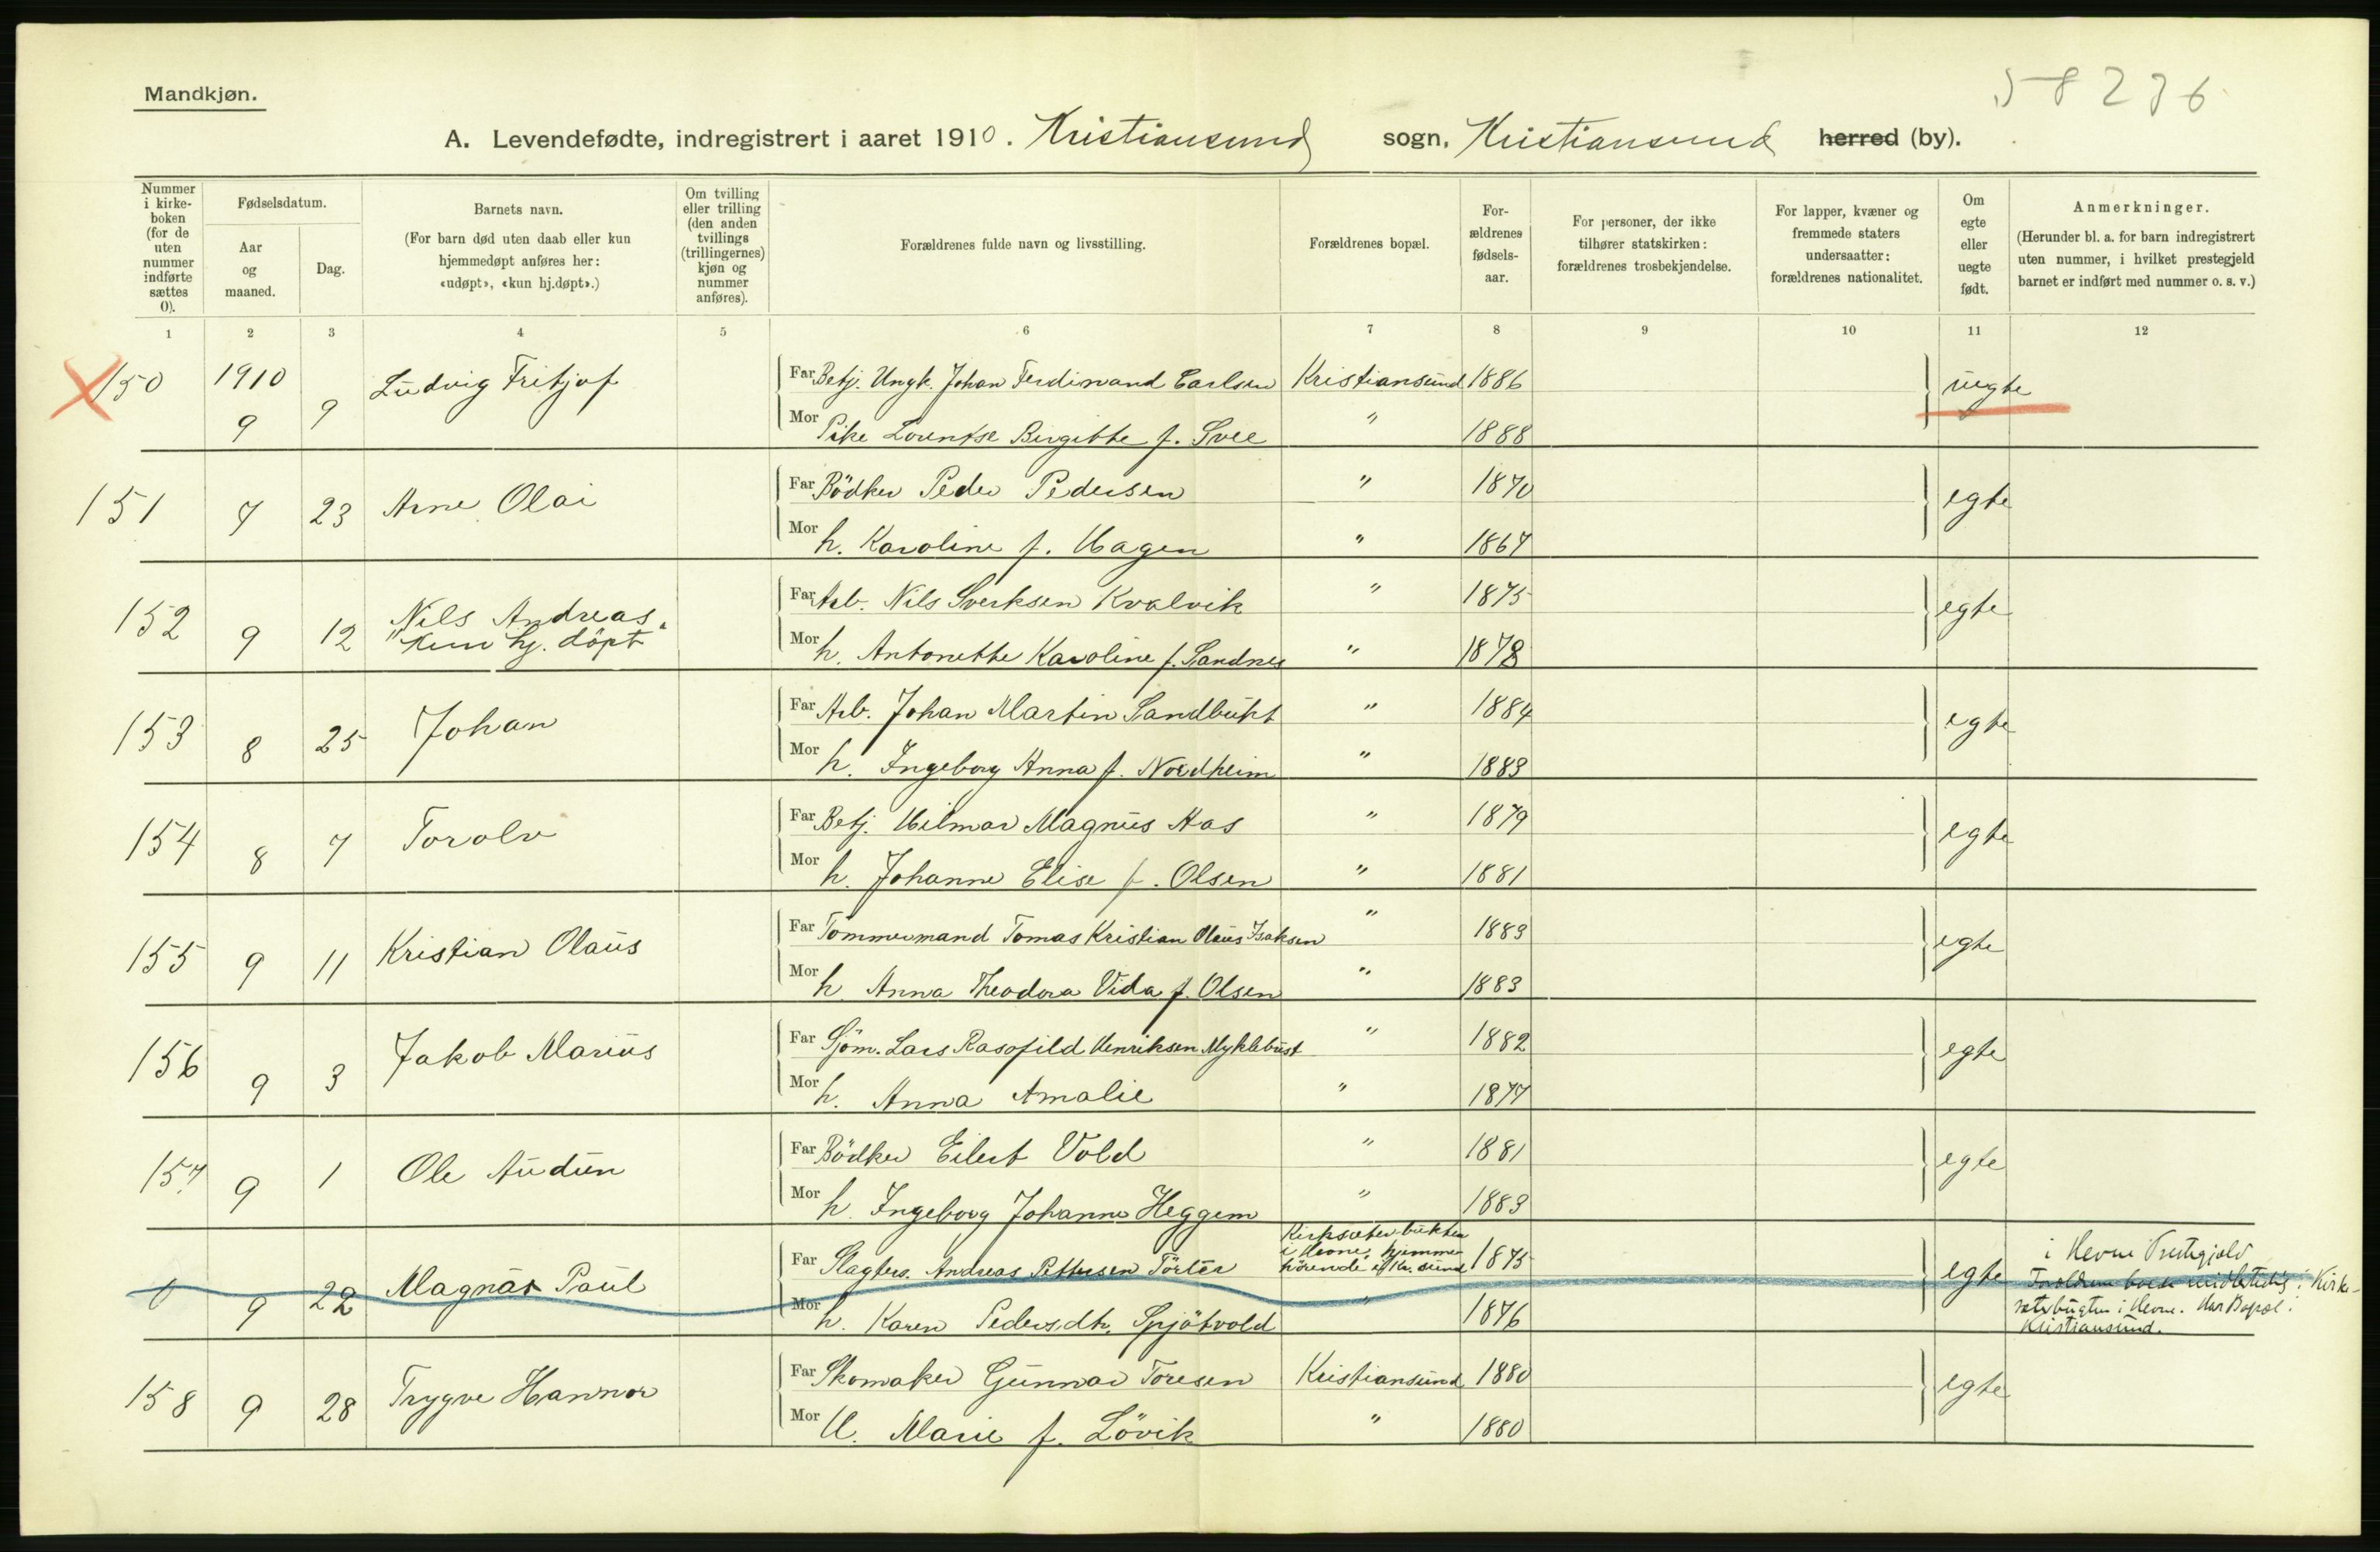 58236
Mandkjøn.
A. Levendefødte, indregistrert i aaret 1910. Kristiansund sogn, Kristiansund herred (by).
Nummer i kirke-boken (for de uten nummer indførte sættes 0).
Fødselsdatum.
Aar og maaned.
Dag.
Barnets navn.
(For barn død uten daab eller kun hjemmedøpt anføres her: «udøpt», «kun hj.døpt».)
Om tvilling eller trilling (den anden tvillings (trillingernes) kjøn og nummer anføres).
Forældrenes fulde navn og livsstilling.
Forældrenes bopæl.
For-ældrenes fødsels-aar.
For personer, der ikke tilhører statskirken: forældrenes trosbekjendelse.
For lapper, kvæner og fremmede staters undersaatter: forældrenes nationalitet.
Om egte eller uegte født.
Anmerkninger.
(Herunder bl. a. for barn indregistrert uten nummer, i hvilket prestegjeld barnet er indført med nummer o. s. v.)
1 2 3 4 5 6 7 8 9 10 11 12
150 1910 9 9 Ludvig Fritjof Far Betj. Ungk. Johan Ferdinand Carlsen Kristiansund 1886 uegte
Mor Pike Lorentse Birgitte f. Svee " 1888
151 7 23 Arne Olai Far Bödker Peder Pedersen " 1870 egte
Mor h. Karoline f. Hagen " 1867
152 9 12 Nils Andreas. Far Arb. Nils Sverksen Kvalvik " 1875 egte
"Kun hj. döpt" Mor h. Antonette Karoline f. Sandnes " 1878
153 8 25 Johan Far Arb. Johan Martin Sandbukt " 1884 egte
Mor h. Ingeborg Anna f. Nordheim " 1883
154 8 7 Torolv Far Betj. Hilmar Magnus Aas " 1879 egte
Mor h. Johanne Elise f. Olsen " 1881
155 9 11 Kristian Olaus Far Tömmermand Tomas Kristian Olaus Isaksen " 1883 egte
Mor h. Anna Theodora Vida f. Olsen " 1883
156 9 3 Jakob Marius Far Sjöm. Lars Rasofild Henriksen Myklebust " 1882 egte
Mor h. Anna Amalie " 1877
157 9 1 Ole Audun Far Bödker Eilert Vold " 1881 egte
Mor h. Ingeborg Johanne Heggem " 1883
0 9 22 Magnar Paul Far Slagter Andreas Pettersen Kirksæterbukten i Hevne, hjemmehörende i Kr.sund 1875 egte i Hevne Prestegjeld
Forældrene boede midlertidig i Kirke-
Mor h. Karen Pedersdtr. Spjötvold " 1876 sæterbugten i Hevne. Har Bopæl i
Kristiansund.
158 9 28 Trygve Hannor Far Skomaker Gunnar Toresen Kristiansund 1880 egte
Mor H. Marie f. Lövik " 1880